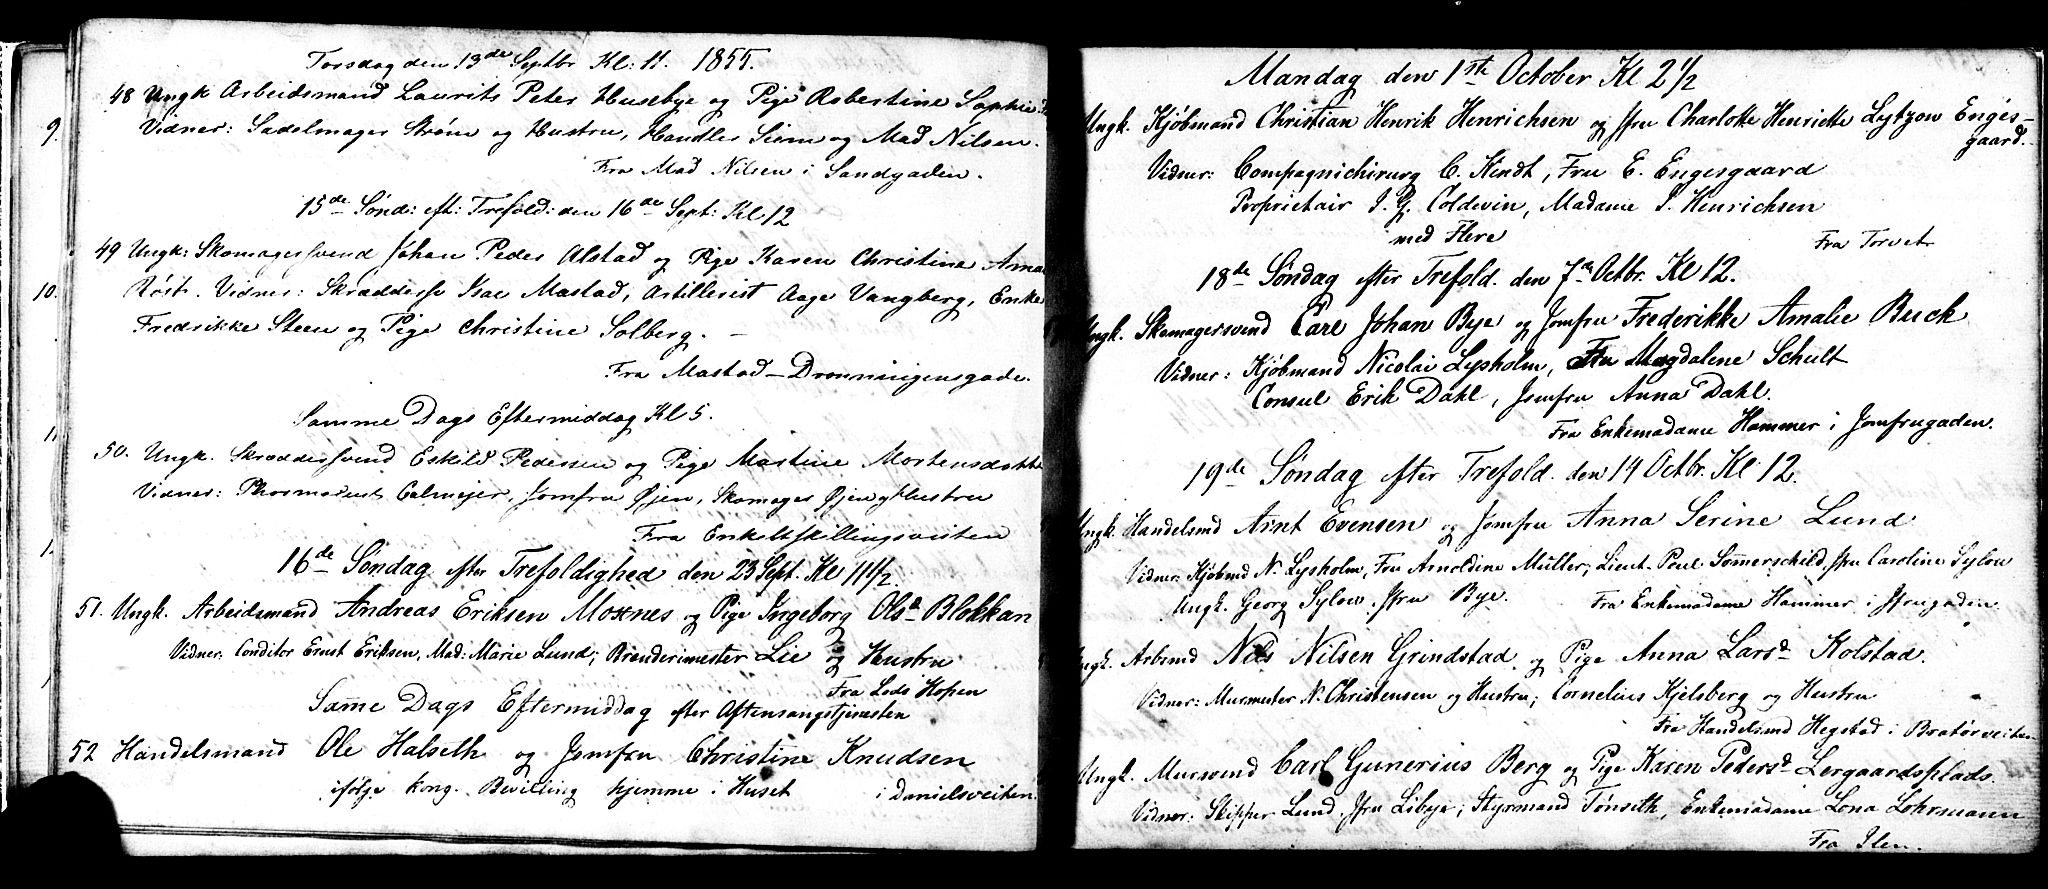 Torsdag den 13de Septbr Kl: 11. 1855.
48 Ungk Arbeidsmand Laurits Peter Husebye og Pige Robertine Sophie
Vidner: Sadelmager Strøm og Hustru, Handler Siem og Mad Nilsen.
Fra Mad Nilsen i Sandgaden.
15de Sønd: eft: Trefold: den 16de Sept: Kl 12
49 Ungk: Skomagersvend Johan Peder Alstad og Pige Karen Christine
Vidner: Skrædderse Isac Mastad, Artillerist Aage Vangberg, Enke
Fredrikke Steen og Pige Christine Solberg. —
Fra Mastad — Dronningensgade.
Samme Dags Eftermiddag Kl 5.
50. Ungk. Skræddersvend Eskild Pedersen og Pige Martine Mortensdatt
Vidner: Calmejer, Jomfru Øjen, Skomager Øjen og Hustru
Fra Enkeltskillingsveiten
16de Søndag efter Trefoldighed den 23 Sept. Kl 11½
51. Ungk. Arbeidsmand Andreas Eriksen Moxnes og Pige Ingeborg Olsd Blokkan
Vidner: Conditor Ernst Eriksen, Mad: Marie Lund; Brænderimester Lie og Hustru
Fra Lods Hopen
Samme Dags Eftermiddag efter Aftensangstjenesten
52 Handelsmand Ole Halseth og Jomfru Christine Knudsen
ifølge kong. Bevilling hjemme i Huset i Danielsveiten.
9.
10.
11
Mandag den 1ste October Kl 2½
Ungk. Kjøbmand Christian Henrik Henrichsen og Jfru Charlotte Henriette Lytzow Enges-
gaard.
Vidner: Compagnichirurg C. Hindt, Fru E. Engesgaard
Proprietair J. G. Coldevin, Madame J. Henrichsen
med Flere
Fra Torvet
18de Søndag efter Trefold. den 7de Octbr. Kl 12.
Ungk. Skomagersvend Carl Johan Bye og Jomfru Frederikke Amalie Buck
Vidner: Kjøbmand Nicolai Lysholm, Fru Magdalene Schult
Consul Erik Dahl, Jomfru Anna Dahl.
Fra Enkemadame Hammer i Jomfrugaden.
19de Søndag efter Trefold. den 14 Octbr. Kl 12.
Ungk. Handelsmd Arnt Evensen og Jomfru Anna Serine Lund
Vidner: Kjøbmd N. Lysholm, Fru Arnoldine Müller, Lieut. Poul Sommerschild, Jfru Caroline Sylow
Ungk. Georg Sylow, Jfru Bye.
Fra Enkemadame Hammer i Jfrugaden.
Ungk. Arbsmd Nils Nilsen Grindstad og Pige Anna Larsd Kolstad.
Vidner: Murmester N. Christensen og Hustru; Cornelius Kjelsberg og Hustru
Fra Handelsmd Hegstad i Bratørveiten
Ungk. Mursvend Carl Gunerius Berg og Pige Karen Pedersd Lergaardsplads.
Vidner: Skipper Lund, Jfru Libye; Styrmand Tønseth, Enkemadame Lona Lohrmann
Fra Ilen.